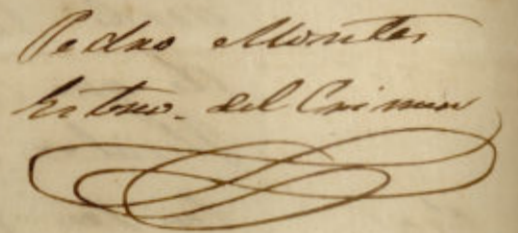 Pedro Montes
Estono. del Crimen